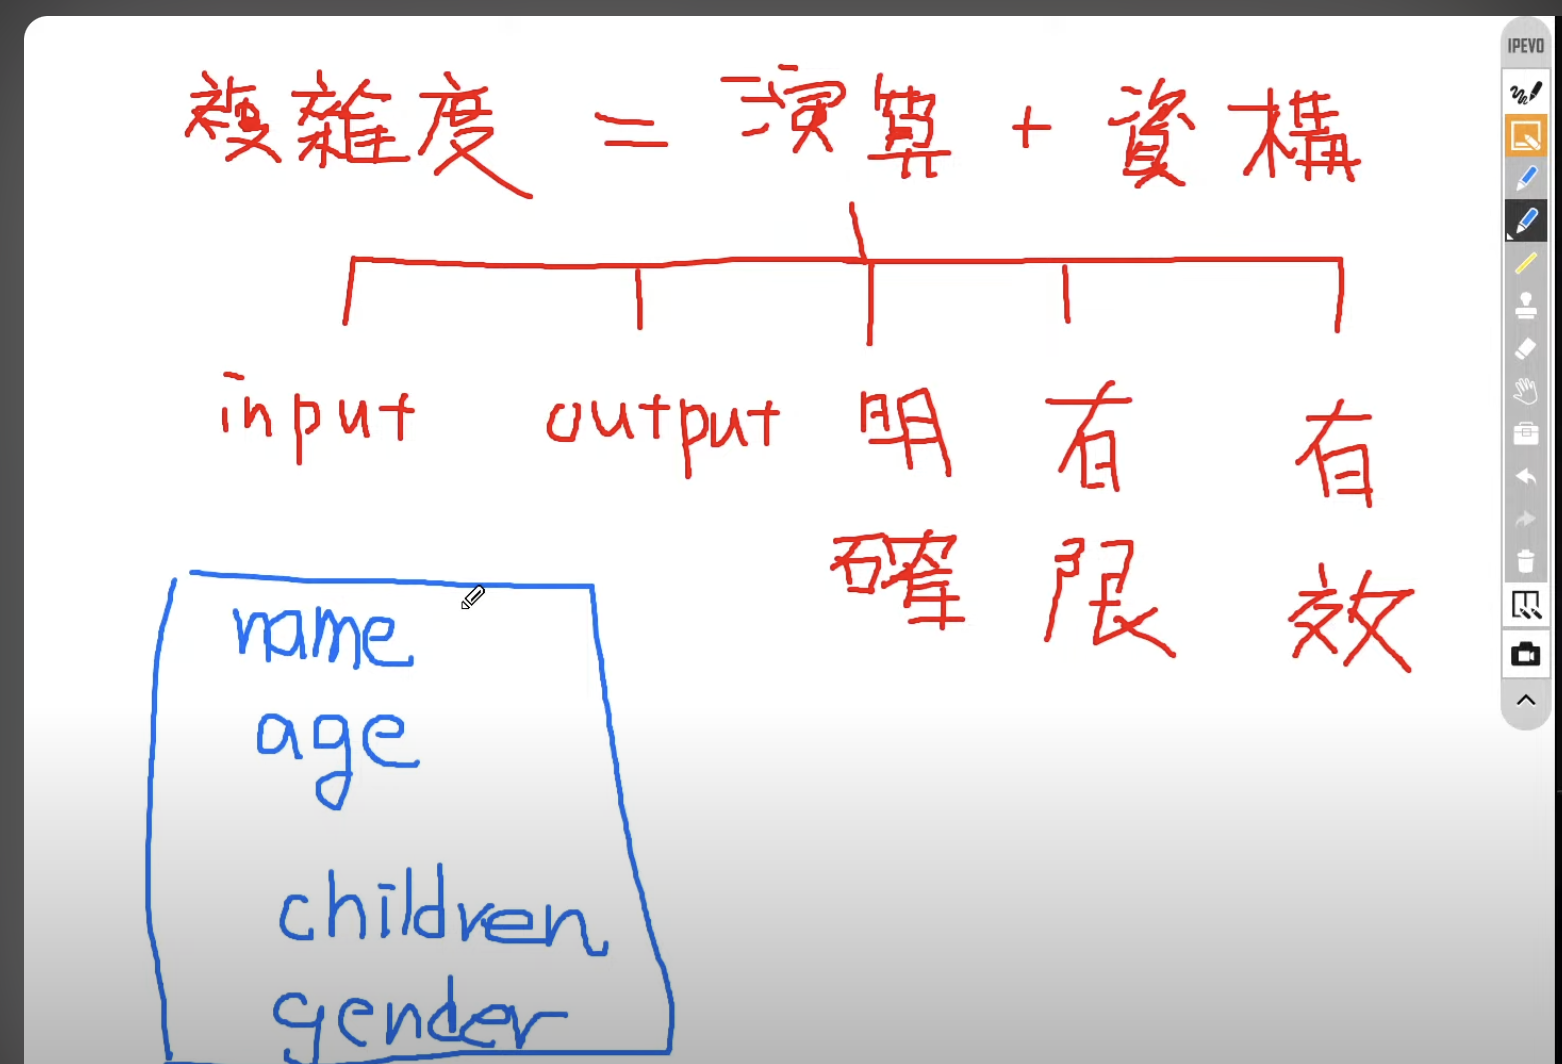 複雜度 = 演算 + 資構
input output 明確 有限 有效
name
age
children
gender
IPEVO